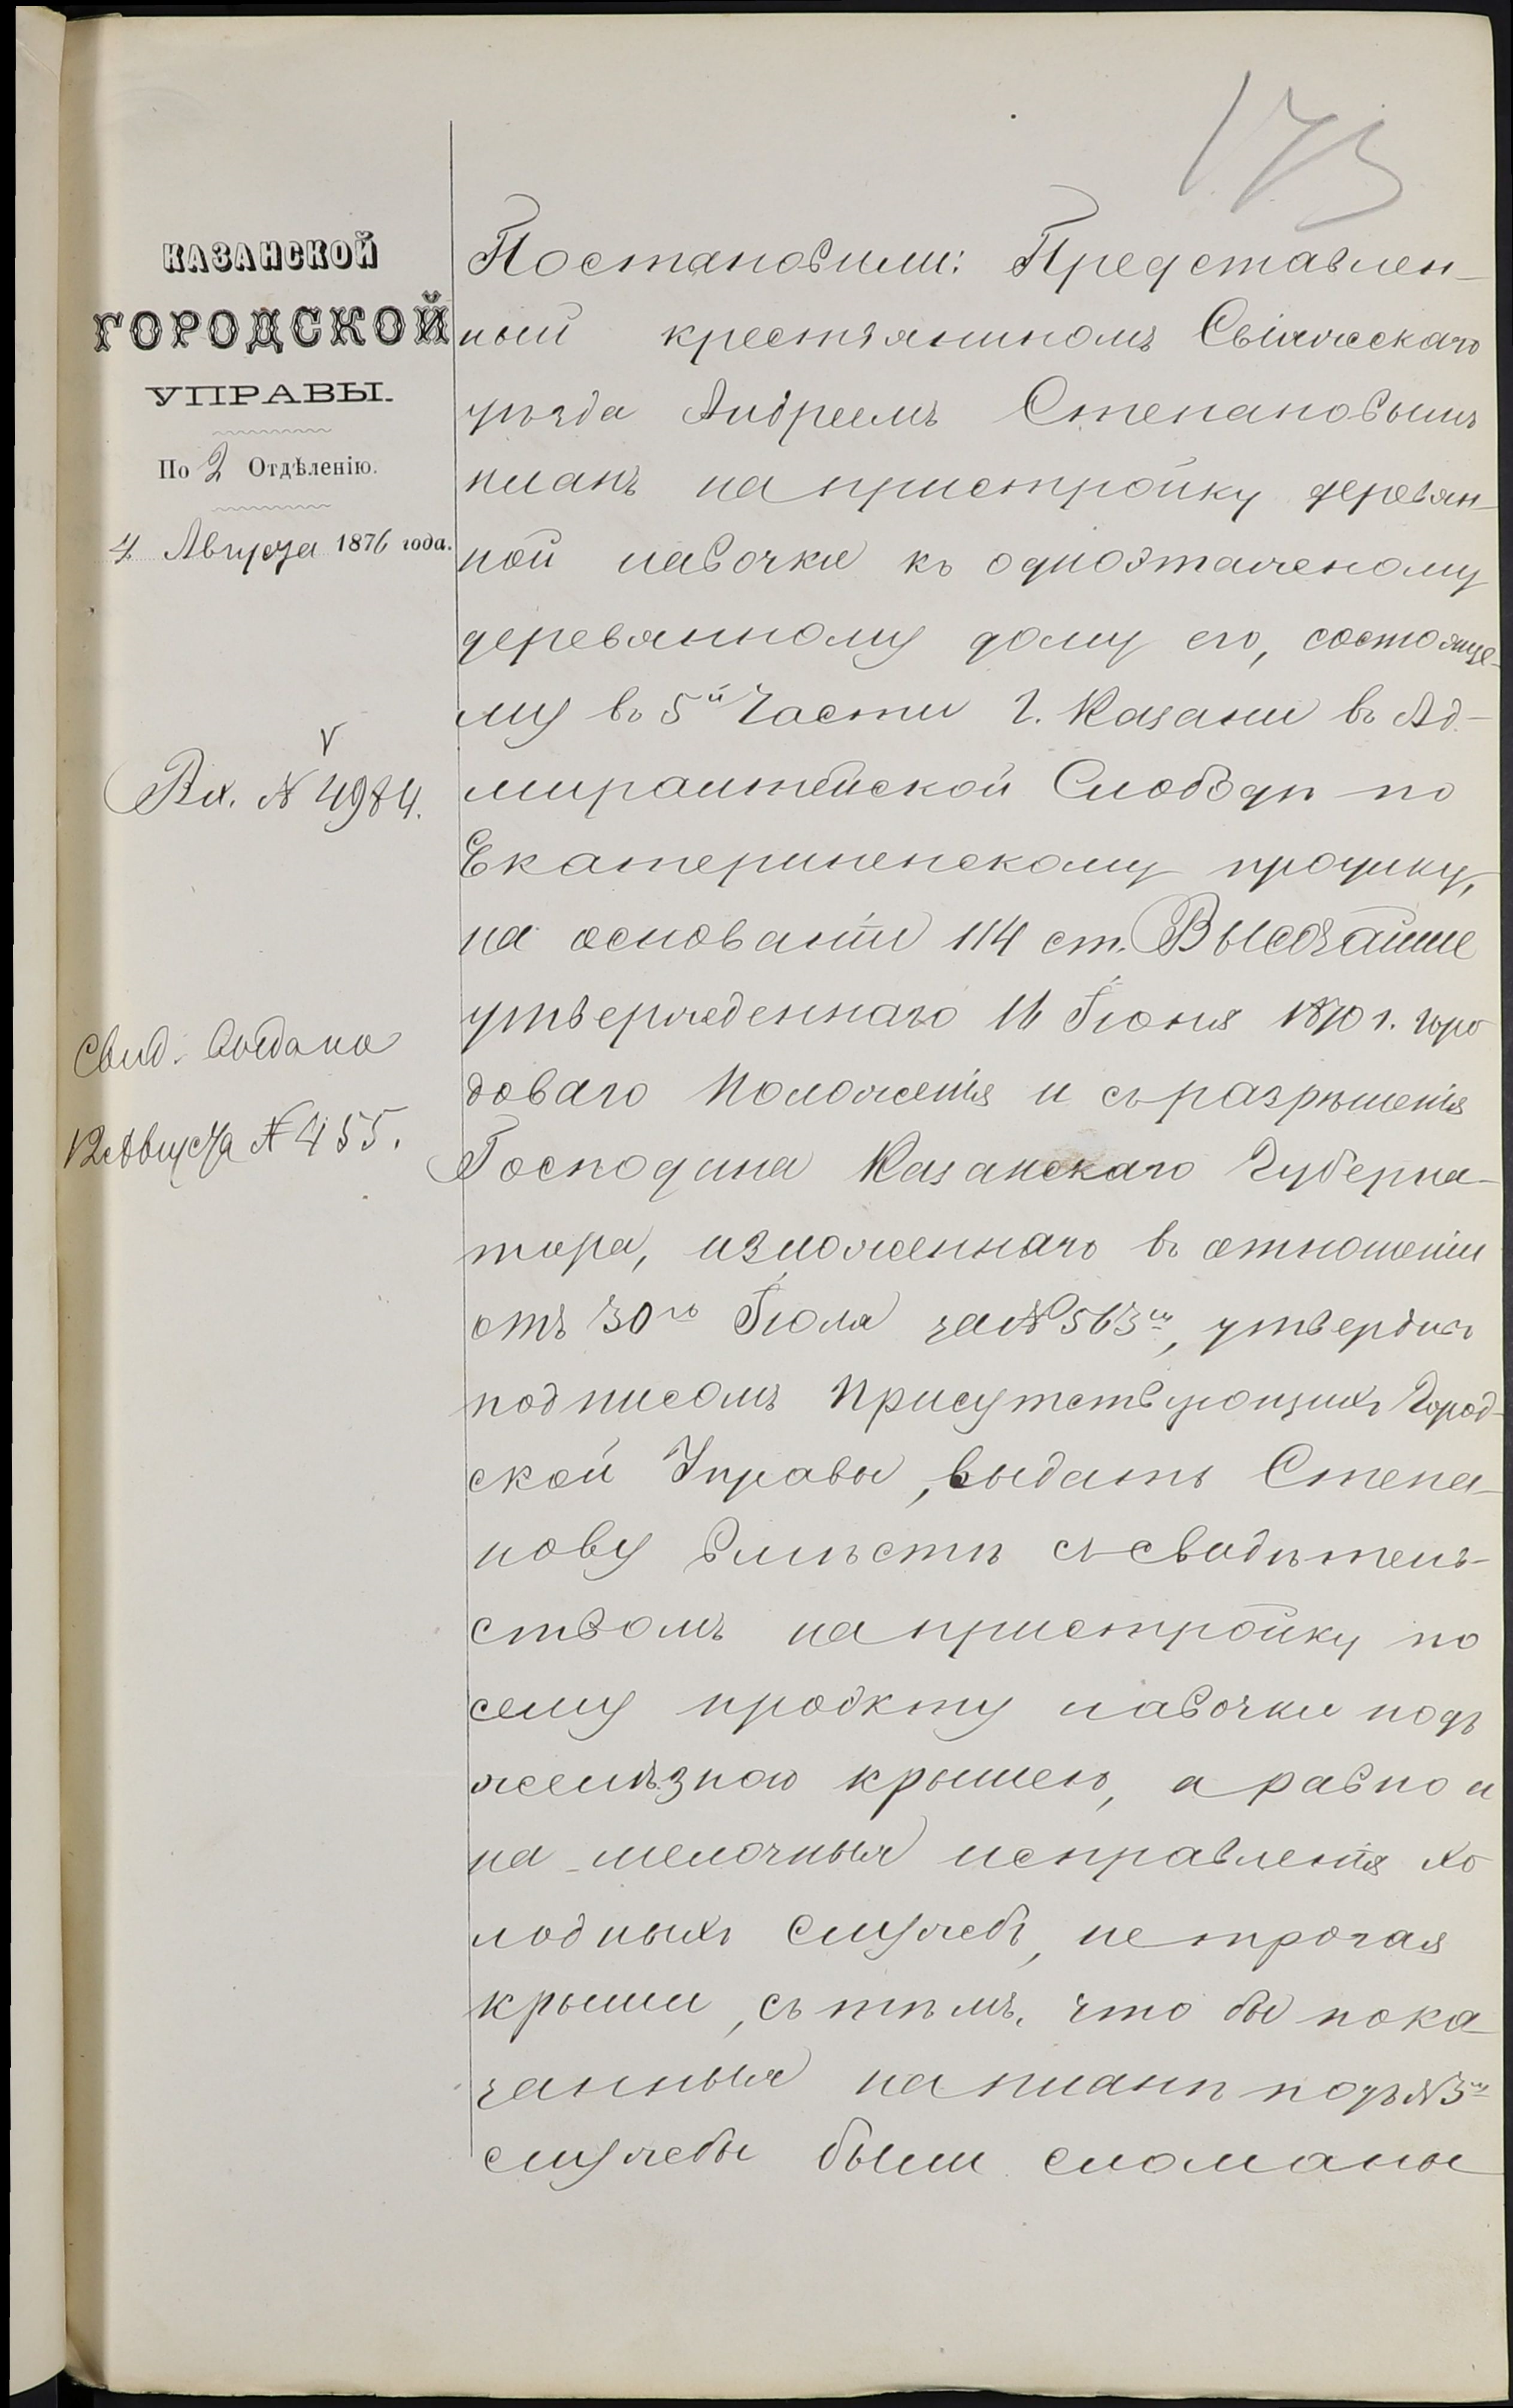 173
КАЗАНСКОЙ
ГОРОДСКОЙ
УПРАВЫ.
По 2 Отдѣленію.
4 Августа 1876 года.
Вх. № 4984.
Свид. выдано
12 Августа № 455.
Постановили: Представлен-
ный крестьяниномъ Свіяжскаго
уѣзда Андреемъ Степановымъ
планъ на пристройку деревян-
ной лавочки къ одноэтажному
деревянному дому его, состояще-
му въ 5й Части г. Казани въ Ад-
миралтейской Слободѣ по
Екатериненскому проулку,
на основаніи 114 ст. Высочайше
утвержденнаго 16 Іюня 1870 г. горо
доваго положенія и съ разрѣшенія
Господина Казанскаго Губерна-
тора, изложеннаго въ отношеніи
отъ 30го Іюля за № 563мъ, утвердивъ
подписомъ присутствующихъ Город-
ской Управы, выдать Степа-
нову вмѣстѣ съ свидѣтель-
ствомъ на пристройку по
сему проэкту лавочки подъ
желѣзною крышею, а равно и
на мелочныя исправленія хо
лодныхъ службъ, не трогая
крыши, съ тѣмъ, что бы пока
занныя на планѣ подъ № 3мъ
службы были сломаны